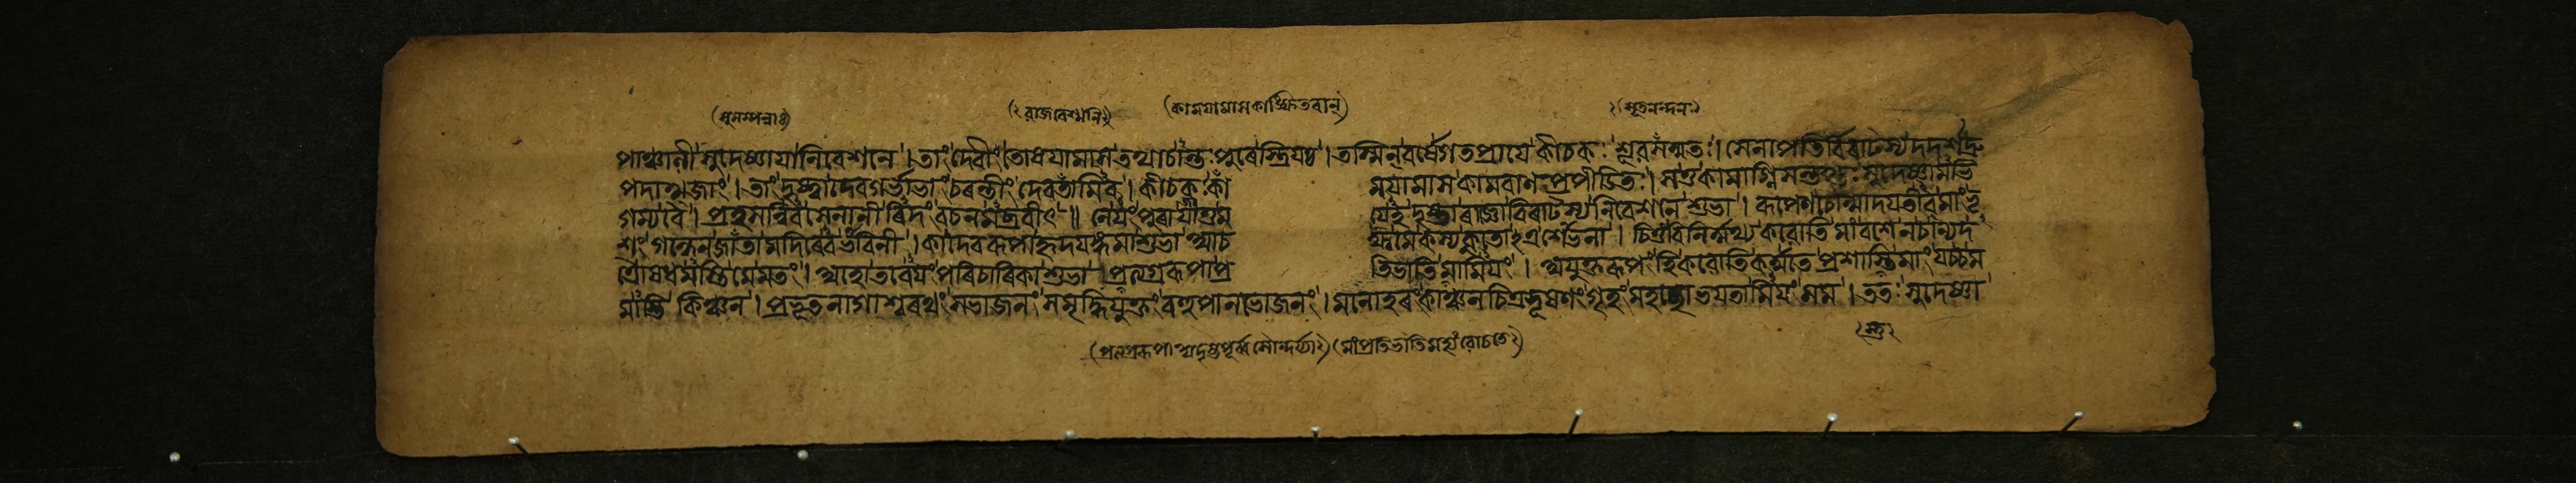 (সুসম্পন্নাঃ) (ঃ রাজবেশ্মনিঃ) (কাময়ামাস কাঙ্ক্ষিতবান্) (সূতনন্দনঃ)
পাঞ্চালী সুদেষ্ণায়া নিবেশনে । তাং দেবীং তোষয়ামাস তথা চান্তঃপুরে স্ত্রিয়ঃ । তস্মিন্ বর্ষে গতপ্রায়ে কীচকঃ শূরসম্মতঃ । সেনাপতির্ব্বিরাটস্য দদর্শ দ্রু
পদাত্মজাং । তাং দৃষ্ট্বা দেবগর্ভাভাং চরন্তীং দেবতামিব । কীচকঃ কা ময়ামাস কামবাণপ্রপীডিতঃ । স তু কামাগ্নিসন্তপ্তঃ সুদেষ্ণামভি
গম্য বৈ । প্রহসন্নিব সেনানীরিদং বচনমব্রবীৎ ॥ নেয়ং পুরা যেহ দৃষ্টা রাজ্ঞো বিরাটস্য নিবেশনে শুভা । রূপেণ চোন্মাদয়তীব মাং ভৃ
শং গন্ধেন জাতা মদিরেব ভাবিনী । কা দেবরূপা হৃদয়ঙ্গমা শুভা আচ ক্ষ্ব মে কস্য কুতোঽত্র শোভনা । চিত্তং বিনির্ম্মথ্য করোতি মাং বশে ন চান্যদ
ত্রৌষধমস্তি মে মতং । অহো তবেয়ং পরিচারিকা শুভা । প্রত্যগ্ররূপা প্র তিভাতি মামিয়ং । অযুক্তরূপং হি করোতি কর্ম্ম তে প্রশাস্তু মাং যচ্চ ম
মাস্তি কিঞ্চন । প্রভূতনাগাশ্বরথং মহাজনং সমৃদ্ধিযুক্তং বহুপানভোজনং । মনোহরং কাঞ্চনচিত্রভূষণং গৃহং মহচ্ছোভয়তামিয়ং মম । ততঃ সুদেষ্ণা
(প্রত্যগ্ররূপা অদৃষ্টপূর্ব্বসৌন্দর্য্যাঃ) (মাং প্রতিভাতি মহ্যং রোচতেঃ)